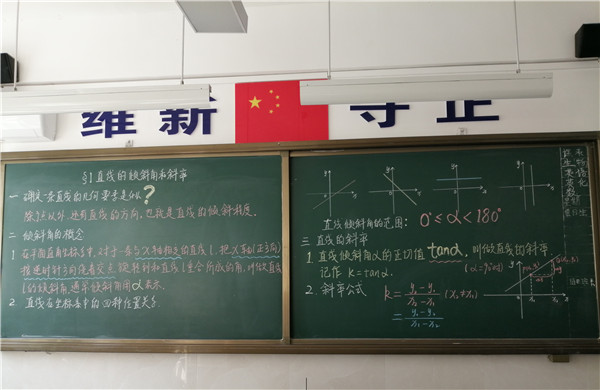 维新 守正
§1 直线的倾斜角和斜率
一 确定一条直线的几何要素是什么?
除了点以外,还有直线的方向,也就是直线的倾斜程度.
二 倾斜角的概念
1. 在平面直角坐标系中,对于一条与x轴相交的直线l,把x轴(正方向)
按逆时针方向绕着交点旋转到和直线l重合所成的角,叫做直线
l的倾斜角,通常倾斜角用α表示.
2. 直线在坐标系中的四种位置关系.
直线倾斜角的范围: 0°≤α<180°
三 直线的斜率
1. 直线倾斜角α的正切值tanα,叫做直线的斜率
记作 k=tanα. (α≠90°)
2. 斜率公式 k=(y₂-y₁)/(x₂-x₁) (x₁≠x₂)
=(y₁-y₂)/(x₁-x₂)